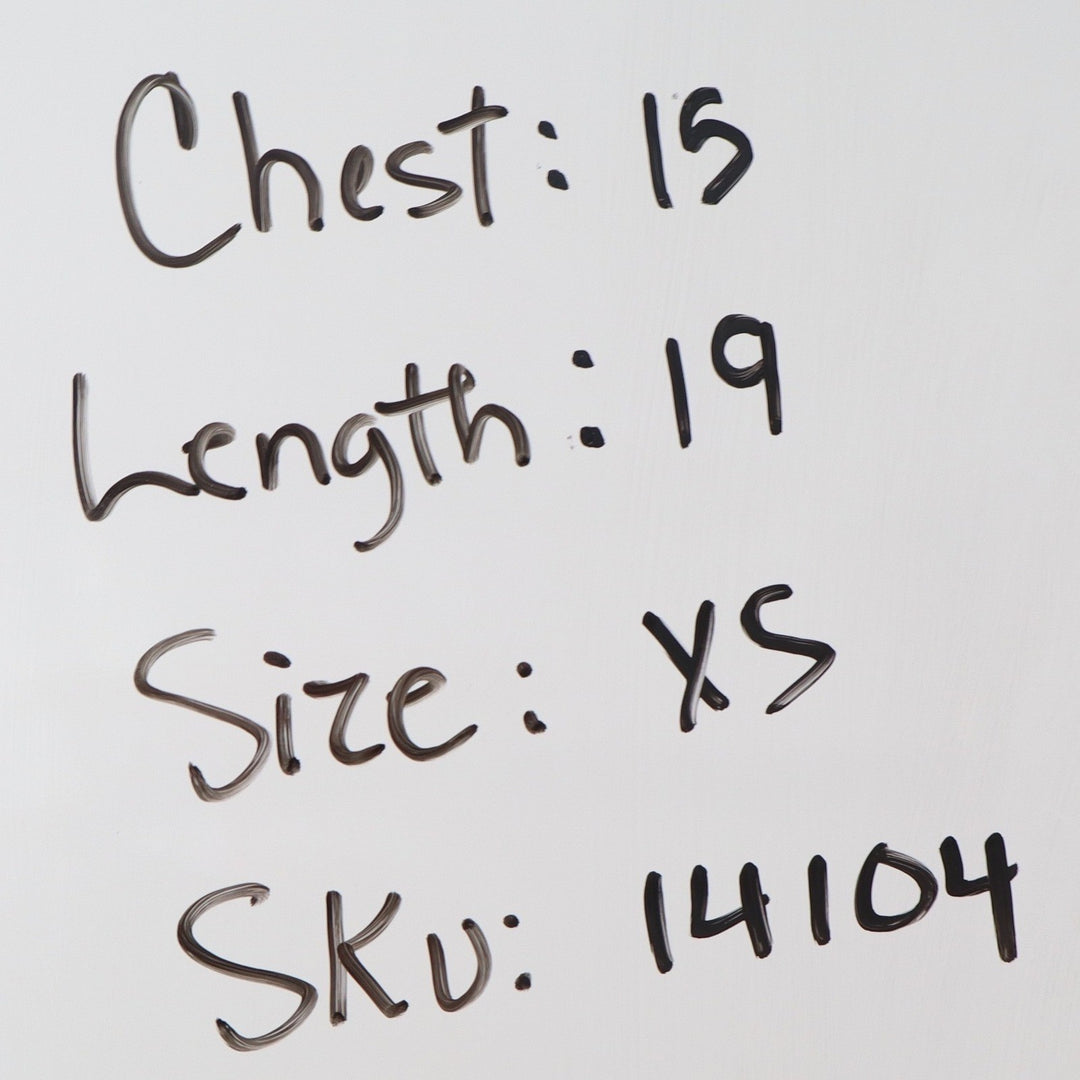 Chest: 15
Length: 19
Size: XS
SKU: 14104